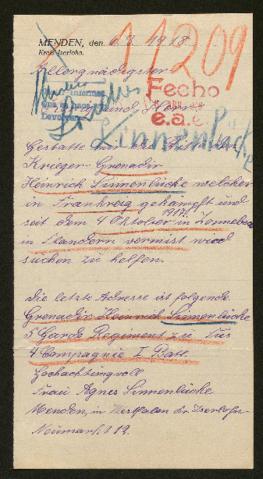 11209
MENDEN, den 6.3. 1918
Kreis Iserlohn.
Allergnädigster
Fecho
e.a.c
informes
Linnenlücke
Gestatte mir
Krieger Grenadir
Heinrich Linnenlücke welcher
in Frankreig gekämpft und
seit dem 4 Oktober in
1917.
in Flandern vermist wird
suchen zu helfen.
die letzte Adresse ist folgende
Grenadir Heinrich Linnenlücke
5 Garde Regiment zu Fuß
4 Compagnie I Batt.
Hochachtungvoll
Frau Agnes Linnenlücke
Menden, in Westfalen Kr Iserlohn
Neumarkt 19.